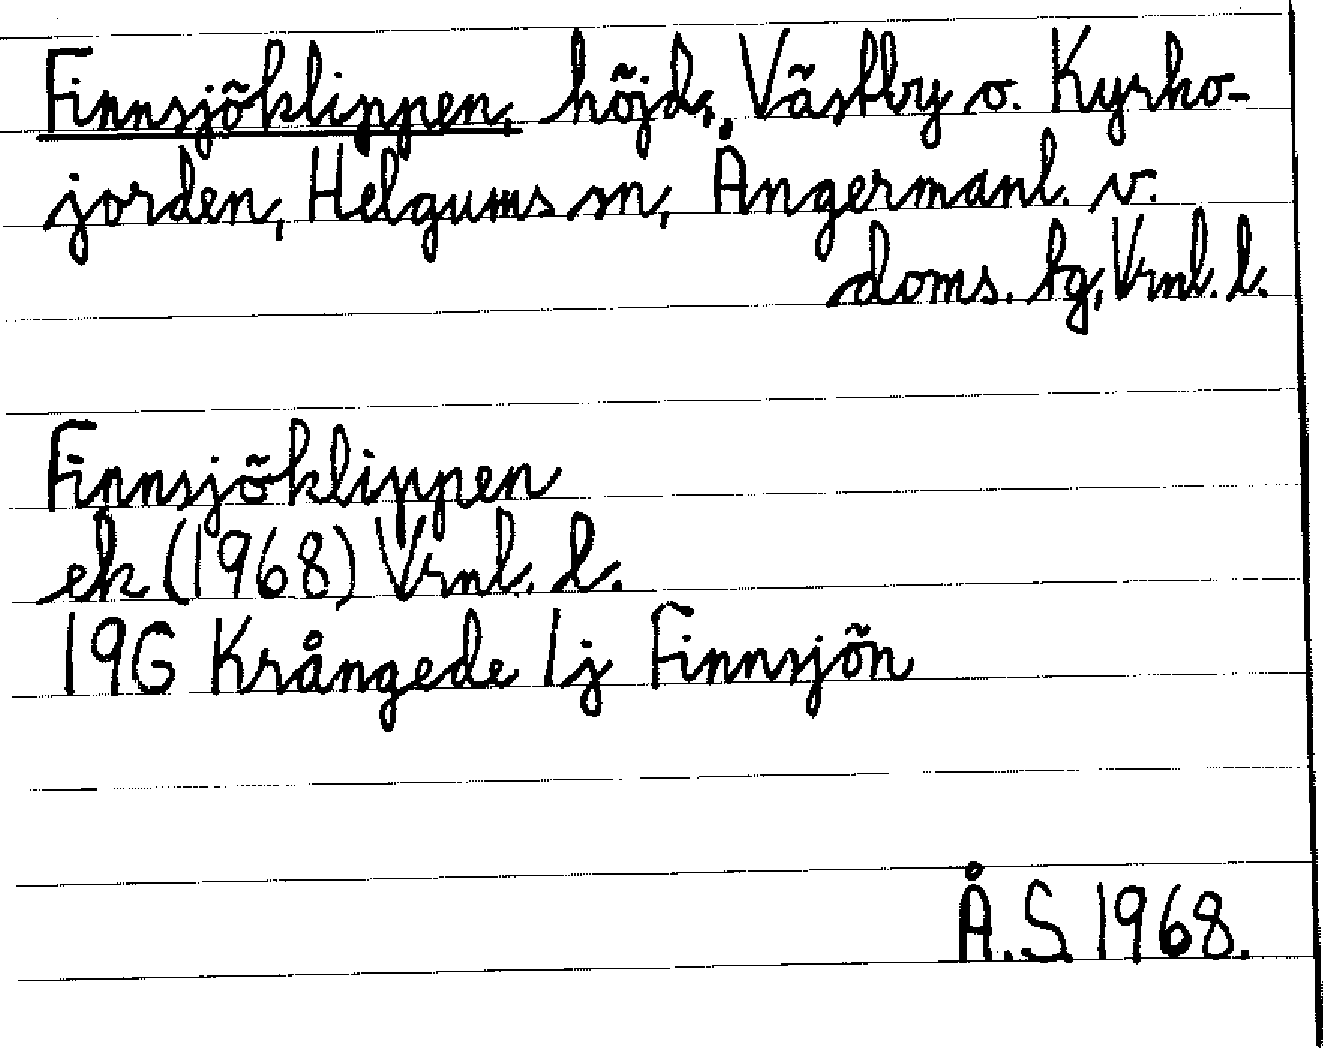 Finnsjöklippen, höjd, Västby o. Kyrko-
jorden, Helgums sn, Ångermanl. v.
doms. tg, Vrnl. l.
Finnsjöklippen
ek (1968) Vrnl. l.
19G Krångede 1j Finnsjön
Å.S. 1968.